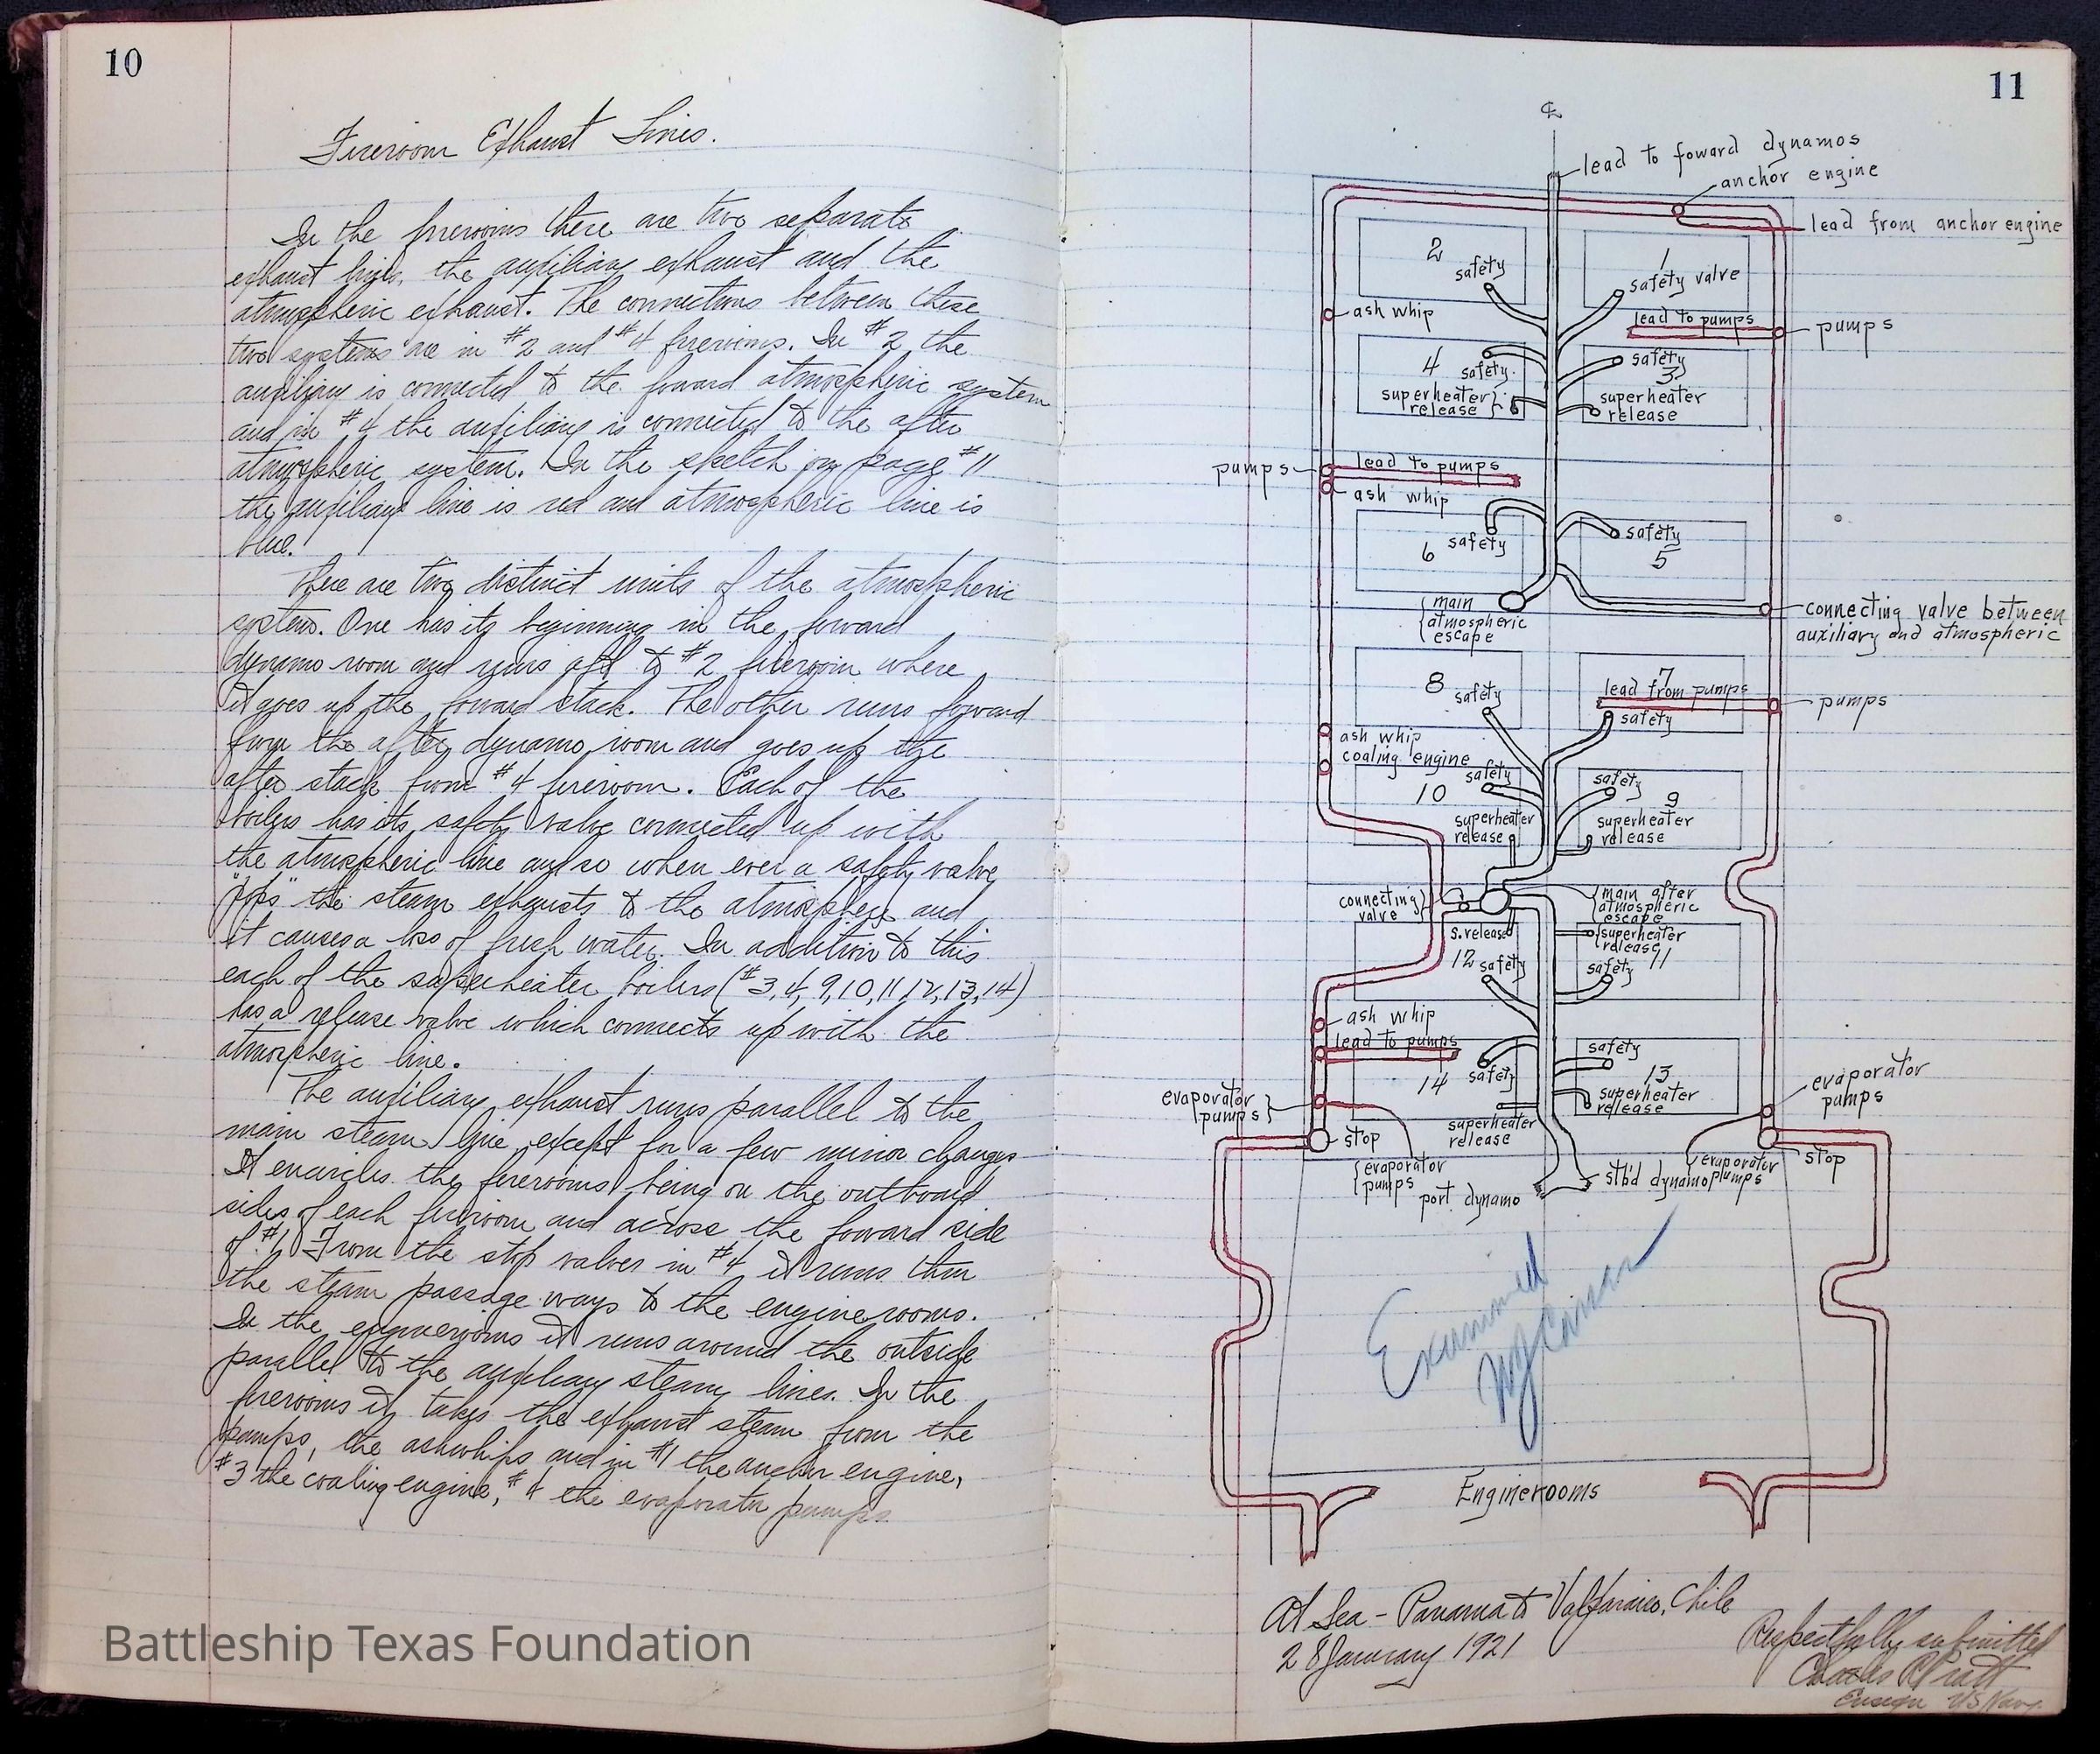 10
Fireroom Exhaust Lines.
In the firerooms there are two separate
exhaust lines, the auxiliary exhaust and the
atmospheric exhaust. The connections between these
two systems are in #2 and #4 firerooms. In #2 the
auxiliary is connected to the foward atmospheric system
and in #4 the auxiliary is connected to the after
atmospheric system. In the sketch on page #11
the auxiliary line is red and atmospheric line is
blue.
There are two distinct units of the atmospheric
system. One has its beginning in the foward
dynamo room and runs aft to #2 fireroom where
it goes up the foward stack. The other runs foward
from the after dynamo room and goes up the
after stack from #4 fireroom. Each of the
boilers has its safety valve connected up with
the atmospheric line and so when ever a safety valve
"pops" the steam exhausts to the atmosphere and
it causes a loss of fresh water. In addition to this
each of the superheater boilers (#3,4,9,10,11,12,13,14)
has a release valve which connects up with the
atmospheric line.
The auxiliary exhaust runs parallel to the
main steam line except for a few minor changes
It encircles the firerooms being on the outboard
sides of each fireroom and across the foward side
of #1. From the stop valves in #4 it runs thru
the steam passage ways to the enginerooms.
In the enginerooms it runs around the outside
parallel to the auxiliary steam lines. In the
firerooms it takes the exhaust steam from the
pumps, the ashwhips and in #1 the anchor engine,
#3 the coaling engine, #4 the evaporator pumps
Battleship Texas Foundation
11
℄
lead to foward dynamos
anchor engine
lead from anchor engine
2
safety
1
safety valve
ash whip
lead to pumps
pumps
4
safety
superheater
release
safety
3
superheater
release
pumps
lead to pumps
ash whip
6
safety
safety
5
main
atmospheric
escape
connecting valve between
auxiliary and atmospheric
8
safety
7
lead from pumps
safety
pumps
ash whip
coaling engine
10
safety
superheater
release
safety
9
superheater
release
connecting
valve
main after
atmospheric
escape
s. release
12
safety
superheater
release
11
safety
ash whip
lead to pumps
14
safety
superheater
release
safety
13
superheater
release
evaporator
pumps
stop
evaporator
pumps
port dynamo
stb'd dynamo
evaporator
pumps
evaporator
pumps
stop
Examined
Enginerooms
At Sea - Panama to Valparaiso, Chile
28 January 1921
Respectfully submitted
Charles R Pratt
Ensign US Navy.